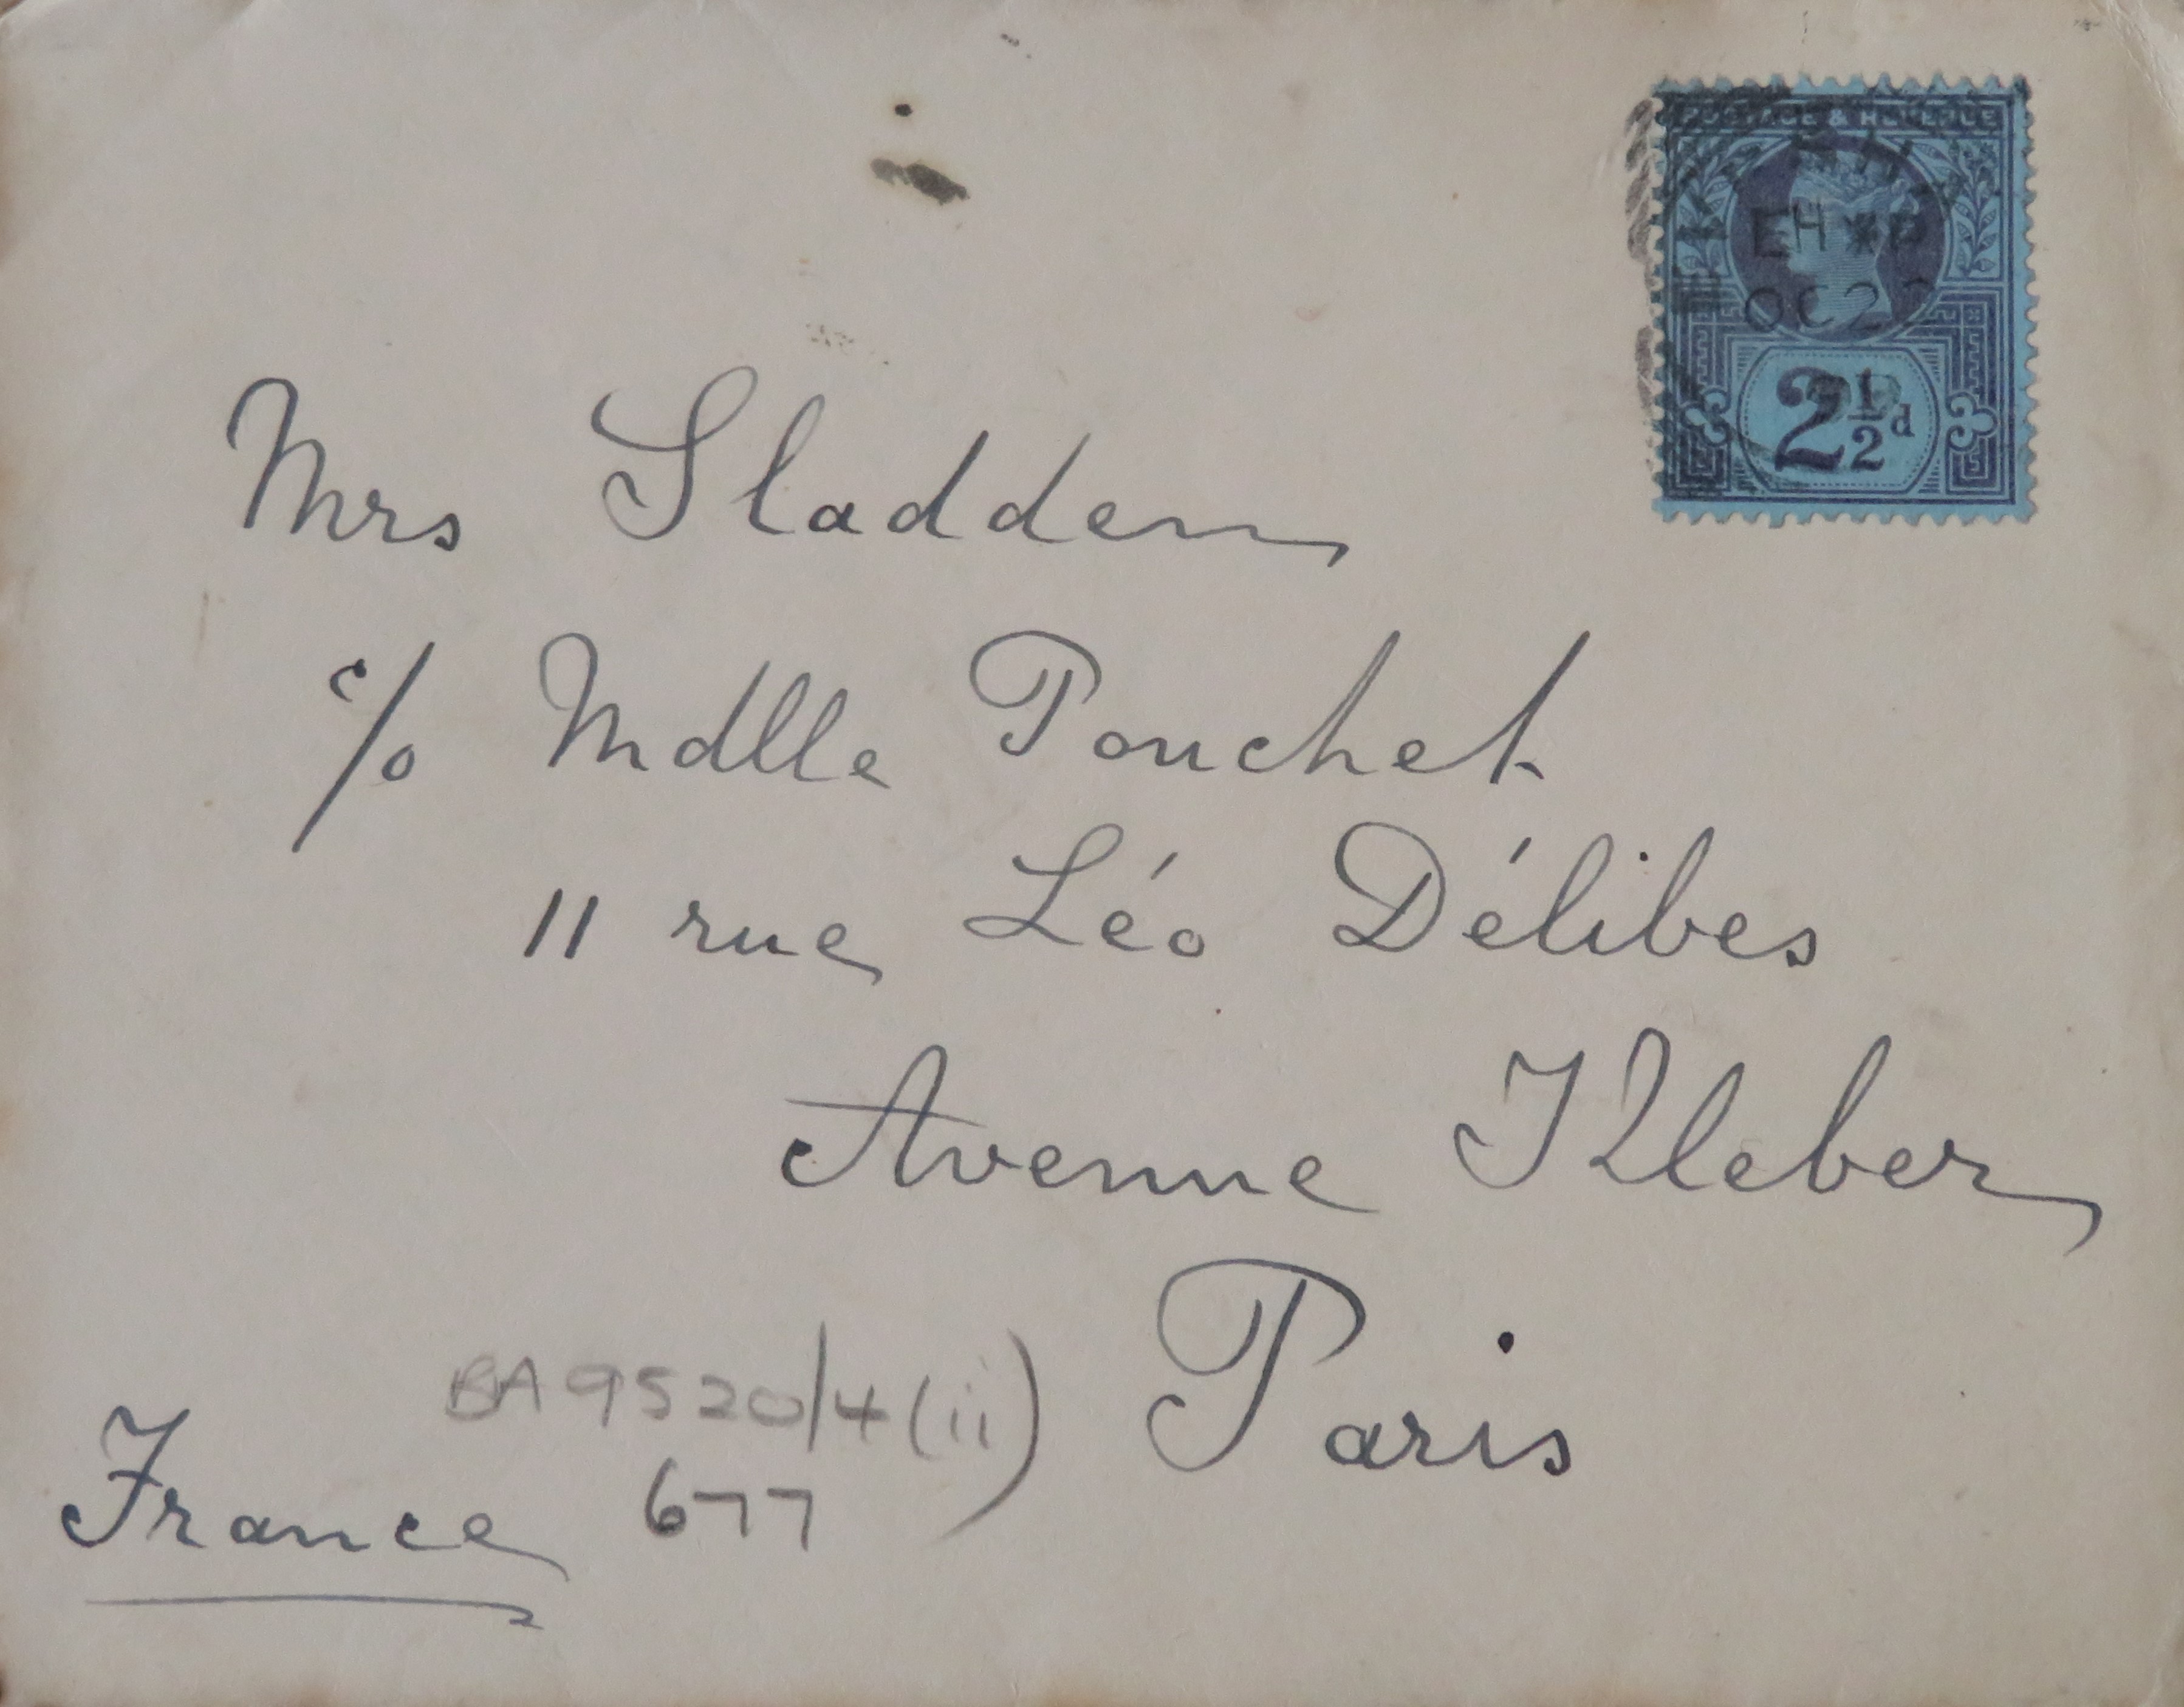 POSTAGE & REVENUE
2½d
Mrs Sladden
c/o Mdlle Pouchet
11 rue Léo Délibes
Avenue Kleber
Paris
France
BA9520/4(ii)
677